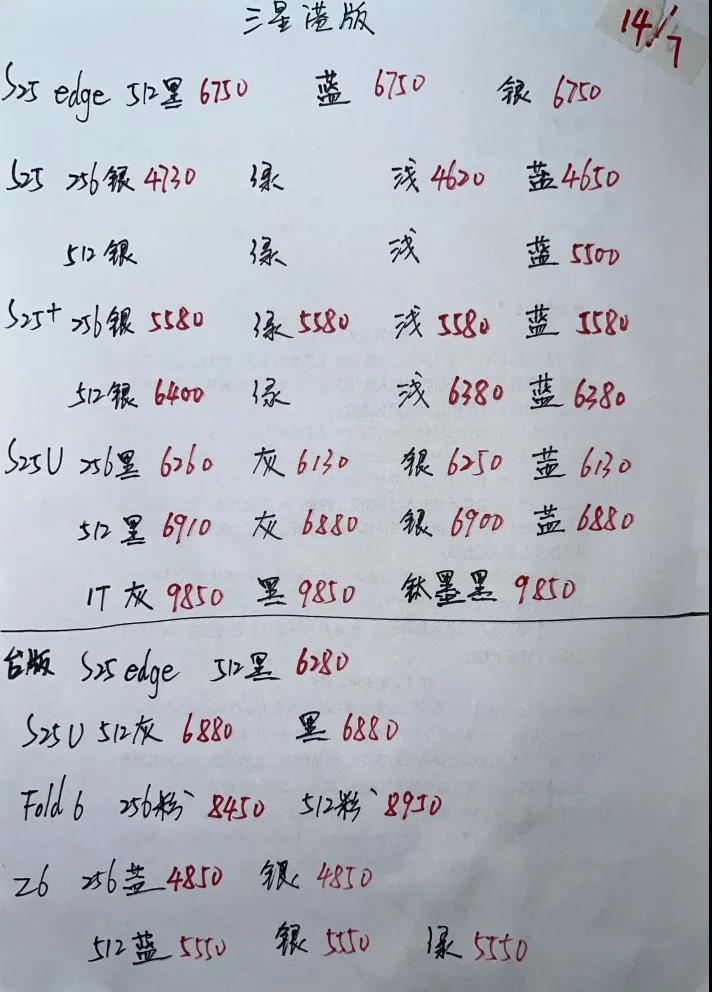 三星港版
14/7
S25 edge 512黑 6750 蓝 6750 银 6750
S25 256银 4730 绿 浅 4620 蓝 4650
512银 绿 浅 蓝 5500
S25+ 256银 5580 绿 5580 浅 5580 蓝 5580
512银 6400 绿 浅 6380 蓝 6380
S25U 256黑 6260 灰 6130 银 6250 蓝 6130
512黑 6910 灰 6880 银 6900 蓝 6880
1T 灰 9850 黑 9850 钛墨黑 9850
台版 S25 edge 512黑 6280
S25U 512灰 6880 黑 6880
Fold 6 256粉 8450 512粉 8950
Z6 256蓝 4850 银 4850
512蓝 5550 银 5550 绿 5550